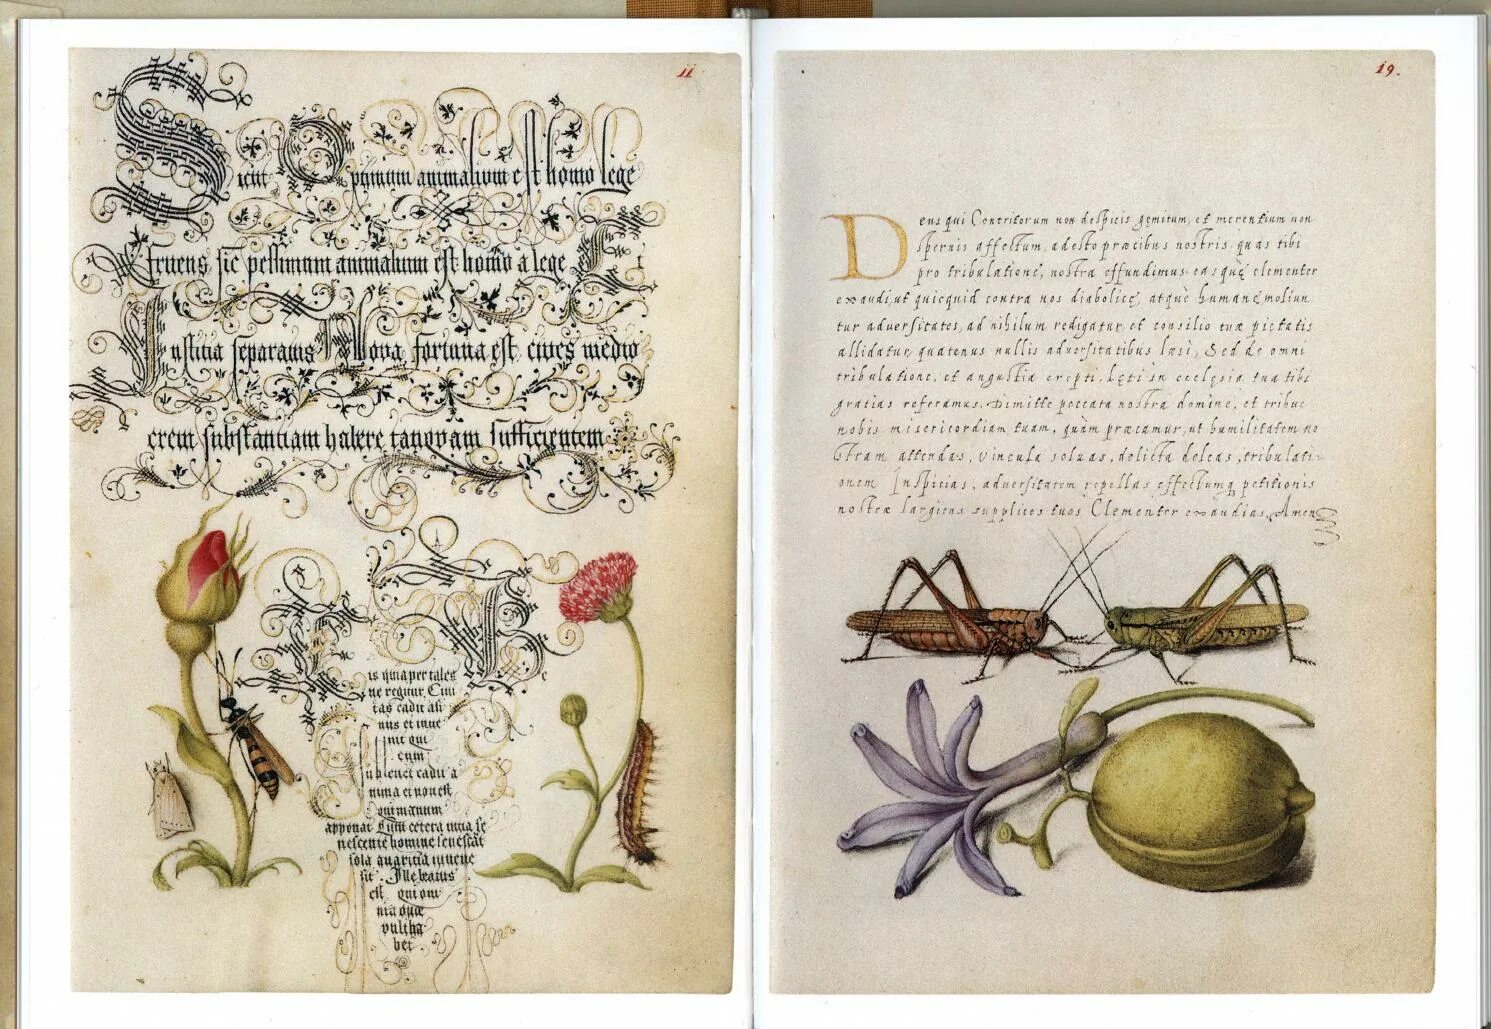 11
Sicut Optimum animalium est homo lege
fruens, sic pessimum animalium est homo a lege et
Iustitia separatus Bona fortuna est, cives medio
crem substantiam habere tanquam sufficientem
His quia per tales
ne regitur. Civi
tas cadit asi
nus et inve
nit qui
eum
sublevet cadit a
nima et non est
qui manum
apponat Cum cetera vitia se
nescente homine senescat
sola avaritia iuvene
sit. Ille beatus
est qui om
nia quae
vult ha
bet.
19.
Deus qui Contritorum non despicis gemitum, et merentium non
spernis affectum, adesto præcibus nostris, quas tibi
pro tribulatione, nostra effundimus: easquę clementer
exaudi, ut quicquid contra nos diabolicę, atque humanę moliun
tur adversitates, ad nihilum redigatur, et consilio tuæ pietatis
allidatur, quatenus nullis adversitatibus læsi, Sed de omni
tribulatione, et angustia erepti, Lęti in ecclęsia tua tibi
gratias referamus. Dimitte peccata nostra domine, et tribue
nobis misericordiam tuam, quàm præcamur, ut humilitatem no
stram attendas, vincula soluas, delicta deleas, tribulati-
onem Inspicias, adversitatem repellas effectumq petitionis
nostræ largiens supplices tuos Clementer exaudias, Amen